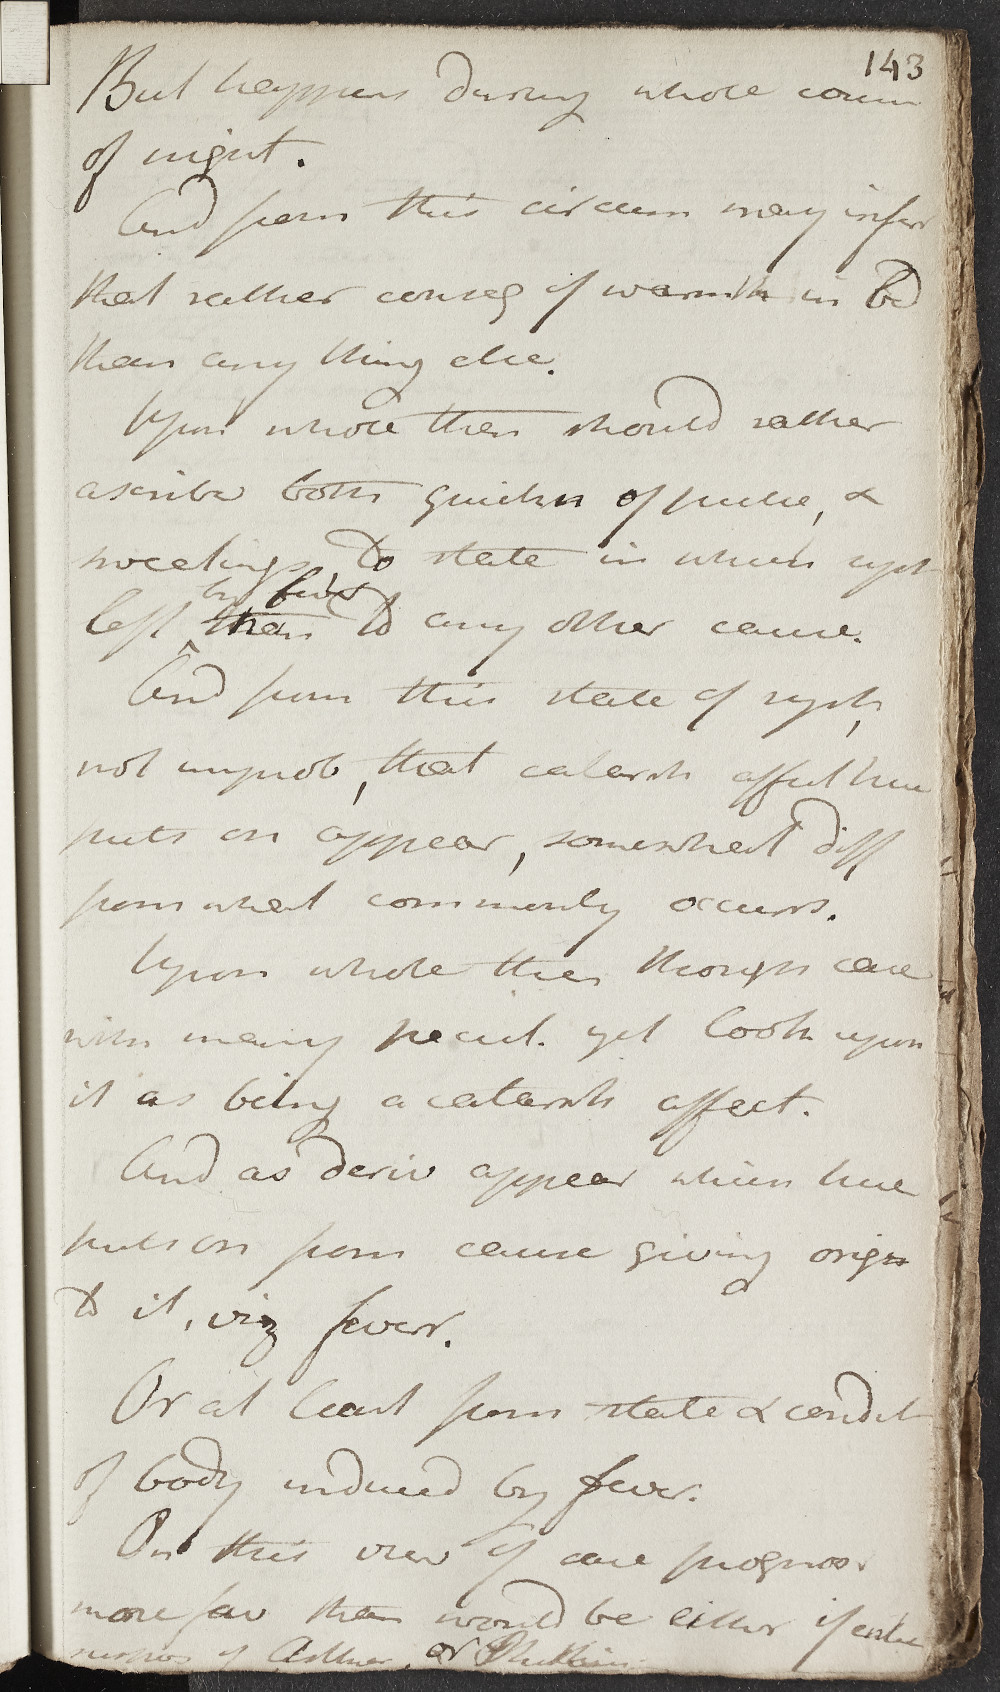 143
But happens during whole cours
of night.
And from this circum may infer
that rather conseq of warmth in bed
than any thing else.
Upon whole then should rather
ascribe both quickn of pulse, &
sweatings to state in which syst
by fever
left than to any other cause.
And from this state of syst,
not improb, that catarrh affect here
puts on appear, somewhat diff
from what commonly occurs.
Upon whole then though case
with many pecul. yet look upon
it as being a catarrh affect.
And as deriv appear which here
puts on from cause giving origin
to it, viz fever.
Or at least from state & condit
of body induced by fever.
On this view of case prognos
more fav than would be either if
of Asthma, or Phthisis.